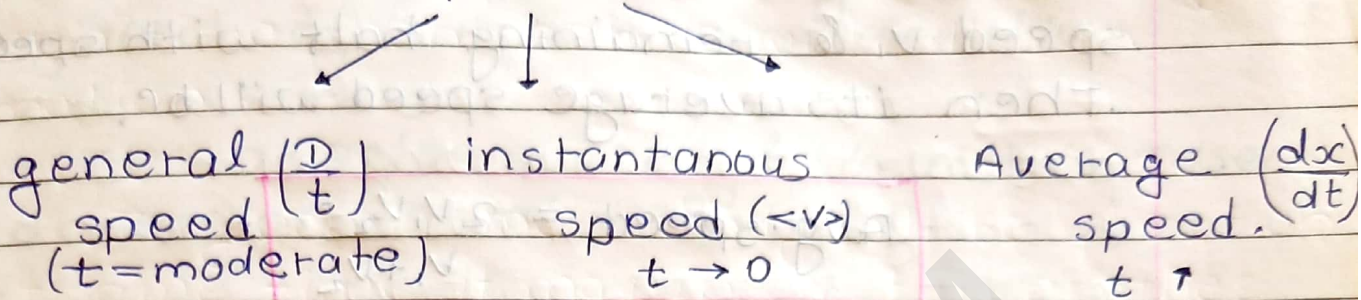 general (D/t)
speed
(t = moderate)
instantanous
speed (<v>)
t → 0
Average (dx/dt)
speed.
t ↑